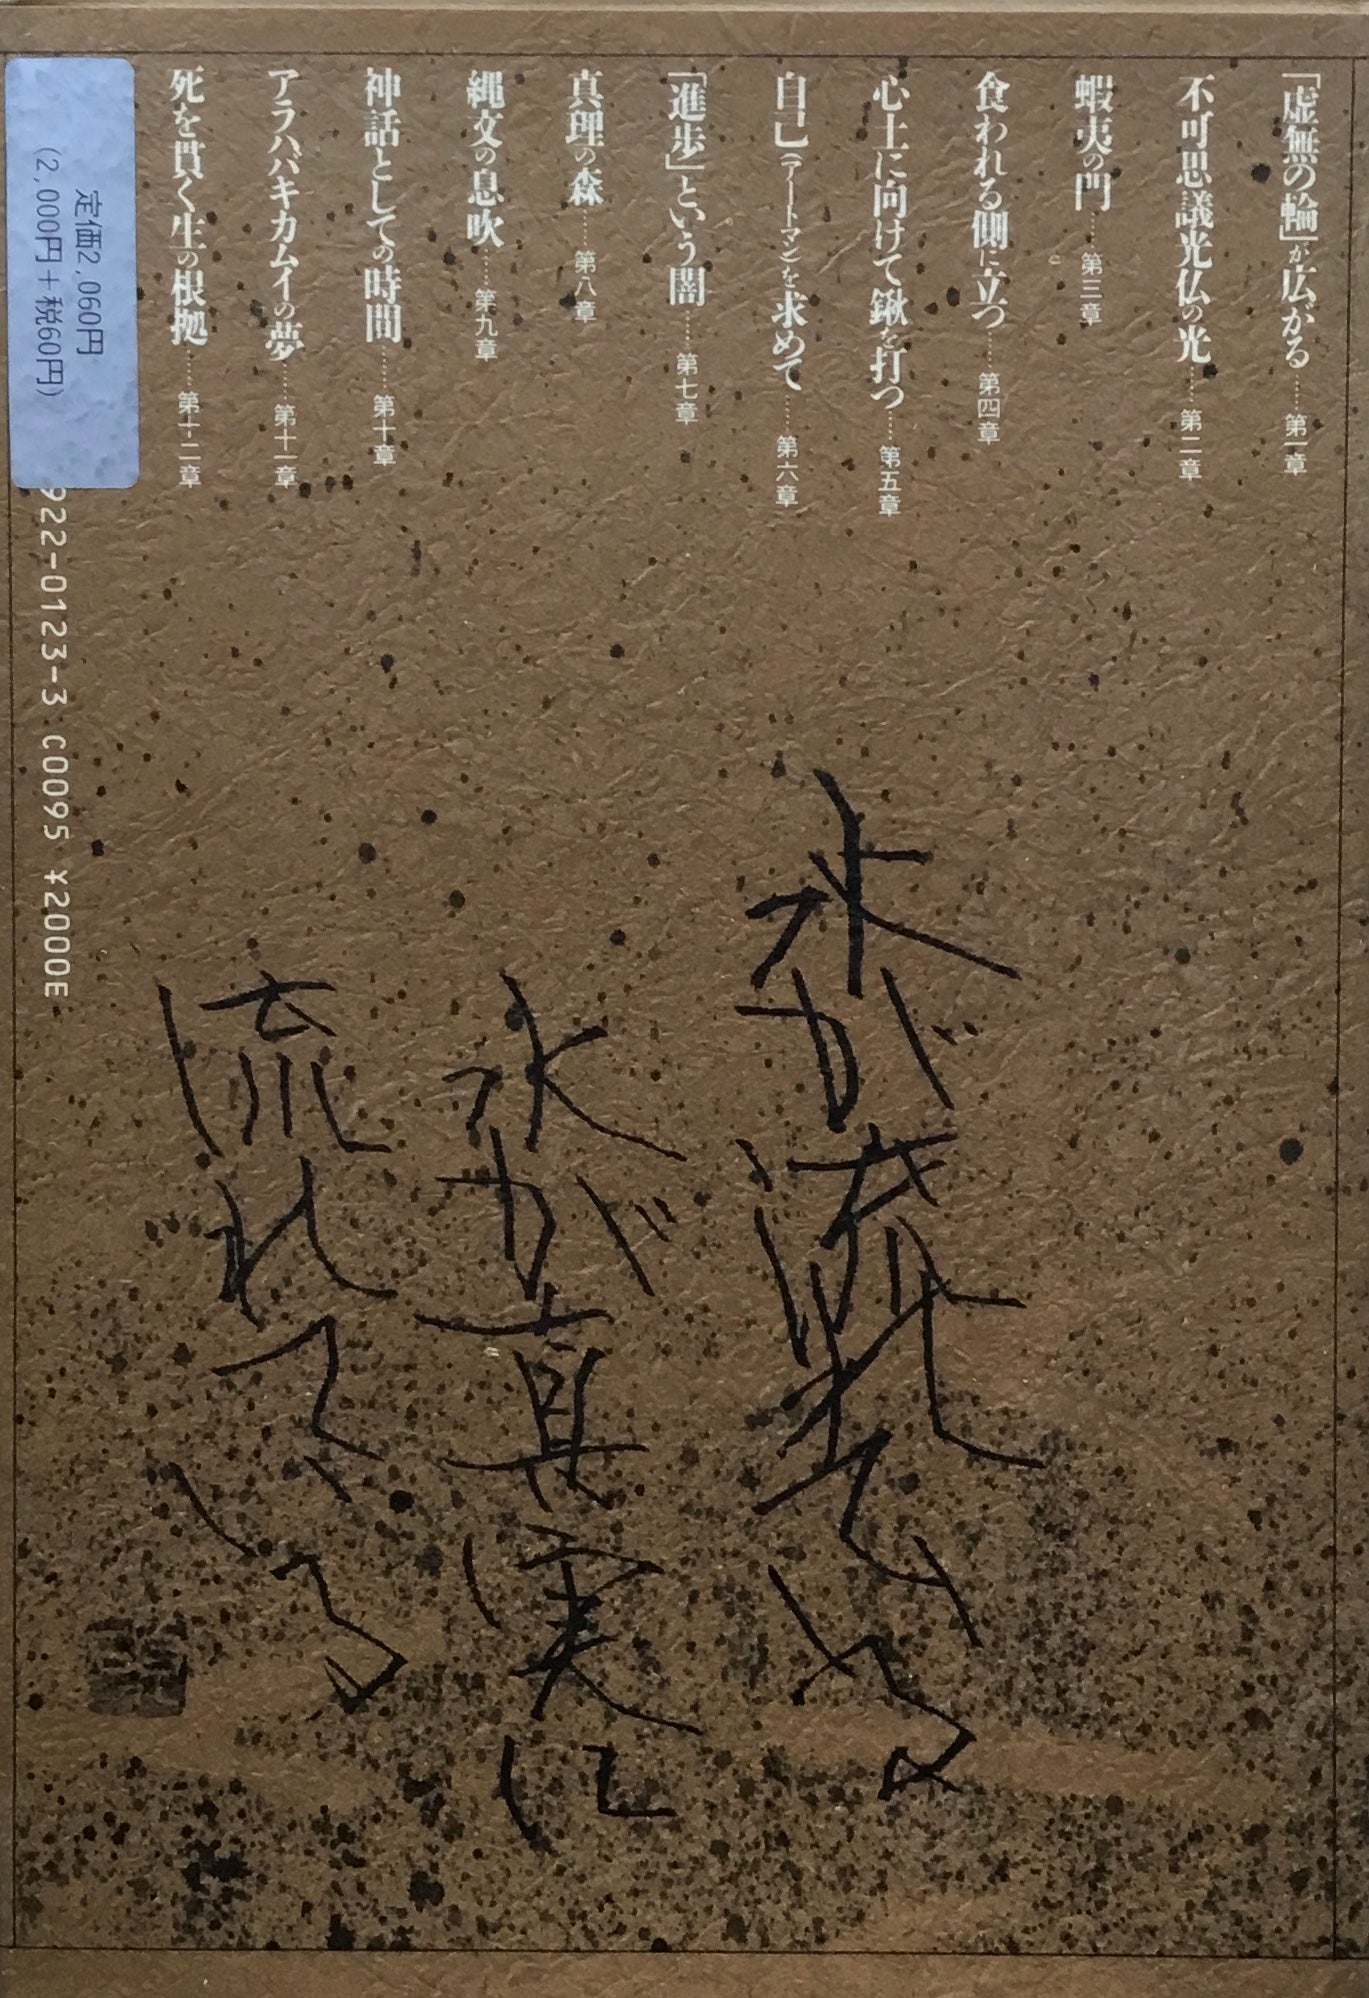 「虚無の輪」が広がる……第一章
不可思議光仏の光……第二章
蝦夷の門……第三章
食われる側に立つ……第四章
心土に向けて鍬を打つ……第五章
自己(アートマン)を求めて……第六章
「進歩」という闇……第七章
真理の森……第八章
縄文の息吹……第九章
神話としての時間……第十章
アラハバキカムイの夢……第十一章
死を貫く生の根拠……第十二章
定価2,060円
(2,000円+税60円)
922-0123-3 C0095 ¥2000E
水が流れている
水が真実に
流れている